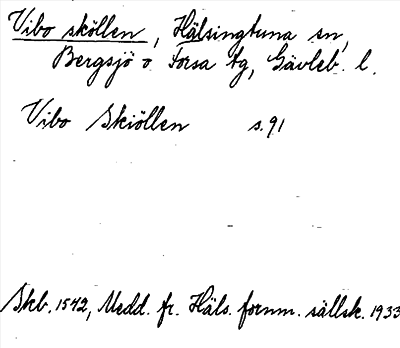 Vibo sköllen, Hälsingtuna sn,
Bergsjö o Forsa tg, Gävleb. l.
Vibo Skiöllen s. 91
Skb. 1542, Medd. fr. Häls. fornm. sällsk. 1933